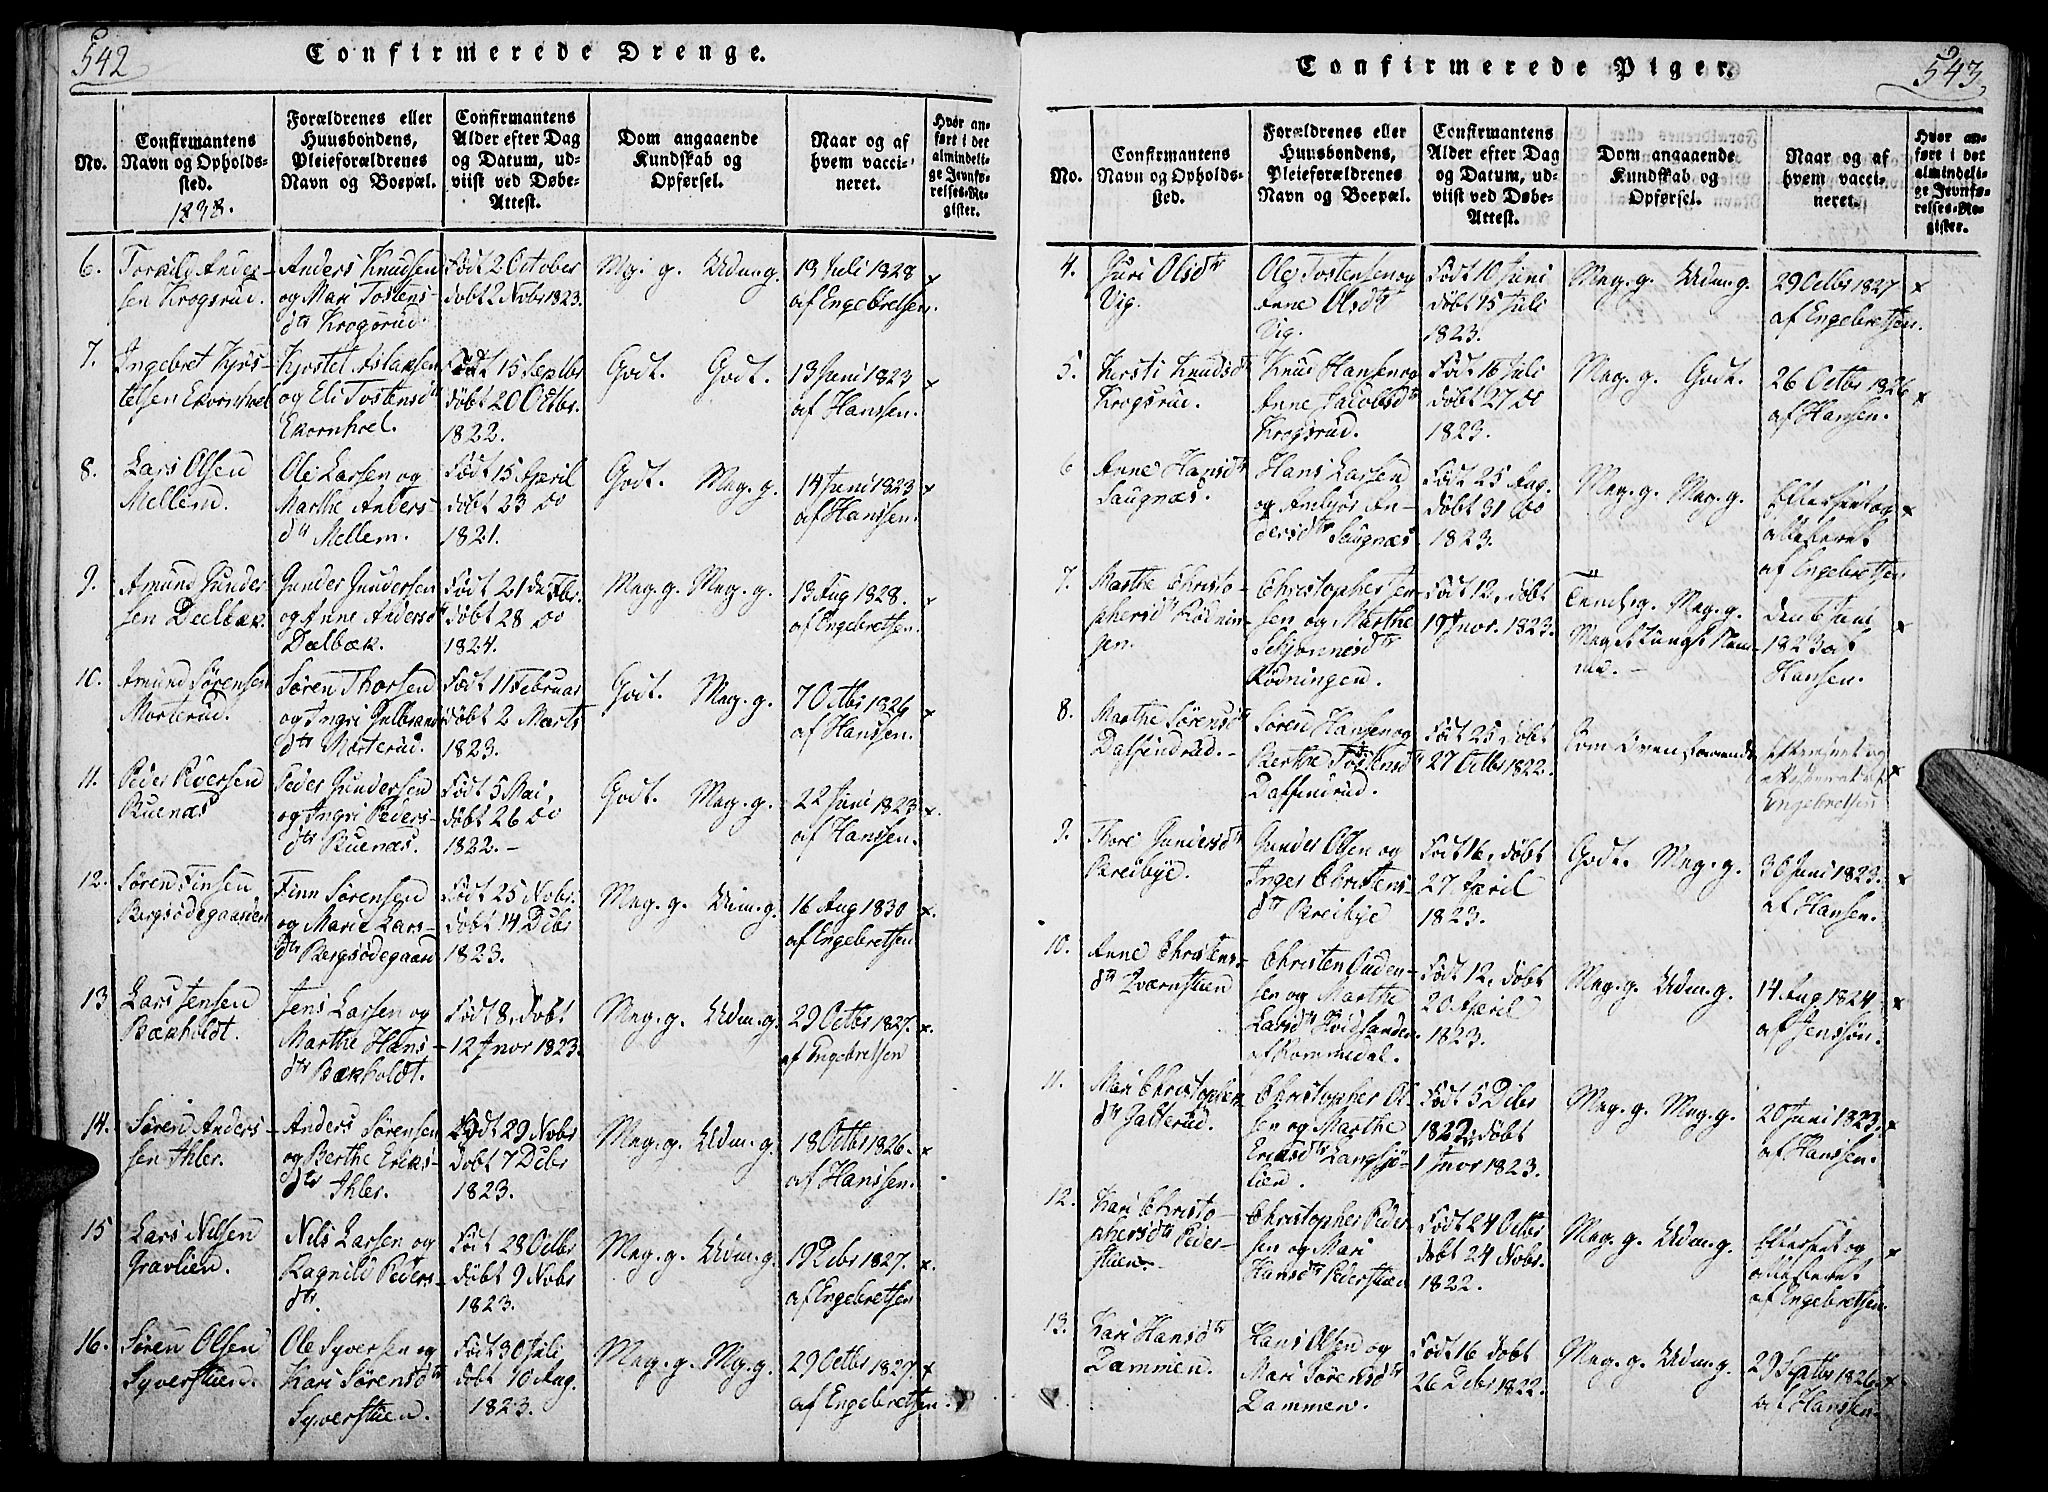 542
Confirmerede Drenge.
No.
Confirmantens
Navn og Opholds-
sted.
1838.
Forældrenes eller
Huusbondens,
Pleieforældrenes
Navn og Boepæl.
Confirmantens
Alder efter Dag
og Datum, ud-
viist ved Døbe-
Attest.
Dom angaaende
Kundskab og
Opførsel.
Naar og af
hvem vacci-
neret.
Hvor an-
ført i det
almindeli-
ge Jevnfø-
relses-Re-
gister.
6.
Torkild Ander-
sen Krogsrud.
Anders Knudsen
og Mari Tostens-
dtr Krogsrud.
Født 2 October
døbt 2 Nobr 1823.
Mg. g. Udm. g.
13 Juli 1828
af Engebretsen.
x
7.
Ingebret Kjøs-
telsen Ekornhoel
Kjøstel Aslaksen
og Eli Tostensdtr
Ekornhoel.
Født 15 Septbr
døbt 20 Octbr.
1822.
Godt. Godt.
13 Juni 1823
af Hanssen.
x
8.
Lars Olsen
Mellem.
Ole Larsen og
Marthe Anders-
dtr Mellem.
Født 15 April
døbt 23 do
1821.
Godt. Meg. g.
14 Juni 1823
af Hanssen.
x
9.
Amund Gunder-
sen Dælbæk.
Gunder Gundersen
og Anne Andersdtr
Dælbæk.
Født 21 Febr.
døbt 28 do
1824.
Meg. g. Meg. g.
13 Aug 1828.
af Engebretsen.
x
10.
Amund Sørensen
Morterud.
Søren Thorsen
og Ingri Gulbrands
dtr Morterud.
Født 11 Februar
døbt 2 Marts
1823.
Godt. Meg. g.
7 Octbr 1826
af Hanssen.
x
11.
Peder Pedersen
Buenæs
Peder Gundersen
og Ingri Peders-
dtr Buenæs.
Født 5 Mai,
døbt 26 do
1822. -
Godt. Meg. g.
22 Juni 1823
af Hanssen.
x.
12.
Søren Finsen
Bergsødegaarden
Finn Sørensen
og Marie Lars-
dtr Bergsødegaard
Født 25 Nobr.
døbt 14 Debr
1823.
Meg. g. Udm. g.
16 Aug 1830
af Engebretsen
x.
13
Lars Jensen
Bækholdt.
Jens Larsen og
Marthe Hans-
dtr Bækholdt.
Født 8, døbt
12 Jnor 1823.
Meg. g. Udm. g.
29 Octbr 1827.
af Engebretsen
x.
14.
Søren Anders-
sen Ihler.
Anders Sørensen
og Berthe Eriks-
dtr Ihler.
Født 29 Nobr
døbt 7 Debr
1823.
Meg. g. Udm. g.
18 Octbr 1826.
af Hanssen.
x
15
Lars Nilsen
Gravlien.
Nils Larsen og
Ragnild Peders-
dtr.
Født 28 Octbr
døbt 9 Nobr
1823.
Meg. g. Udm. g.
19 Debr 1827.
af Engebretsen
x.
16.
Søren Olsen
Syverstuen.
Ole Syversen og
Kari Sørensdtr
Syverstuen.
Født 30 Juli
døbt 10 Aug.
1823.
Meg. g. Mg. g.
29 Octbr 1827.
af Engebretsen.
x
543
Confirmerede Piger.
No.
Confirmantens
Navn og Opholds-
sted.
Forældrenes eller
Huusbondens,
Pleieforældrenes
Navn og Boepæl.
Confirmantens
Alder efter Dag
og Datum, ud-
viist ved Døbe-
Attest.
Dom angaaende
Kundskab og
Opførsel.
Naar og af
hvem vacci-
neret.
Hvor an-
føre i det
almindeli-
ge Jevnfø-
relses-Re-
gister.
4.
Guri Olsdtr
Vig.
Ole Tostensen og
Anne Olsdtr
Vig.
Født 10 Juni
døbt 15 Juli
1823.
Meg. g. Udm. g.
29 Octbr 1827
af Engebretsen.
x
5.
Kersti Knudsdtr
Krogsrud.
Knud Hansen og
Anne Jacobsdtr
Krogsrud.
Født 16 Juli
døbt 27 do
1823.
Meg. g. Godt.
26 Octbr 1826
af Hansen.
x
6
Anne Hansdtr
Saugnæs.
Hans Larsen
og Anbjør An-
dersdtr Saugnæs
Født 25 Aug.
døbt 31 do
1823.
Meg. g. Meg. g.
Efterseet og
attesteret
af Engebretsen
x
7.
Marthe Christo-
phersdtr Rødnin-
gen.
Christopher Jen-
sen og Marthe
Rødningen.
Født 12, døbt
19 Jnor. 1823.
Meg. g.
den 6 Juni
1823 af
Hansen.
x
8.
Marthe Sørensdtr
Daffindrud. -
Søren Hansen og
Berthe Tostensdtr
Daffindrud.
Født 25, døbt
27 Octbr 1822.
Som Ovenstaaende
Efterseet og
attesteret af
Engebretsen
x
9.
Thore Gundersdtr
Breibye.
Gunder Olsen og
Inger Christens-
dtr Breibye
Født 16, døbt
27 April
1823.
Godt. Meg. g.
30 Juni 1823.
af Hansen.
x
10.
Anne Christens-
dtr Kværnstuen
Christen Auden-
sen og Marthe
Larsdtr Hvidsanden
af Rommedal.
Født 12, døbt
20 April
1823.
Meg. g. Udm. g.
14 Aug 1824.
af Jenssøn.
x
11.
Mari Christophers-
dtr Galterud.
Christopher Ol-
sen og Marthe
Eriksdtr Langsjø-
lien.
Født 5 Debr
1822, døbt
1 Jnor 1823.
Meg. g. Meg. g.
20 Juni 1823.
af Hanssen.
x
12.
Kari Christo-
phersdtr Peder-
stuen.
Christopher Peder-
sen og Mari
Hansdtr Pederstuen
Født 24 Octbr
døbt 24 Nobr.
1822.
Meg. g. Udm. g.
Efterseet og
attesteret
af Engebretsen.
x
13.
Kari Hansdtr
Dammen.
Hans Olsen og
Mari Sørensdtr
Dammen.
Født 16 døbt
26 Debr 1822.
Meg. g. Udm. g.
29 Septbr 1826.
af Hanssen.
x